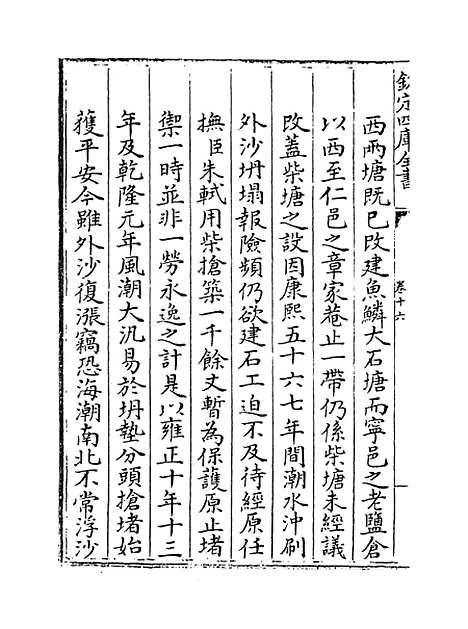 欽定四庫全書
卷十六
西兩塘既已改建魚鱗大石塘而寧邑之老鹽倉
以西至仁邑之章家菴止一帶仍係柴塘未經議
改蓋柴塘之設因康熙五十六七年間潮水沖刷
外沙坍塌報險頻仍欲建石工迫不及待經原任
撫臣朱軾用柴搶築一千餘丈暫為保護原止堵
禦一時並非一勞永逸之計是以雍正十年十三
年及乾隆元年風潮大汛易於坍墊分頭搶堵始
獲平安今雖外沙復漲竊恐海潮南北不常浮沙